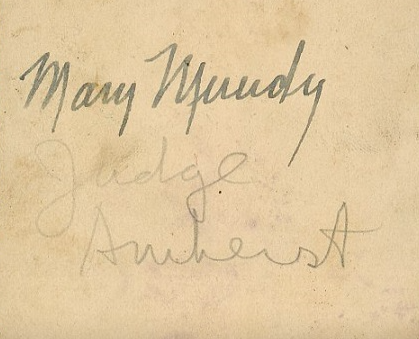 Mary Mundy
Judge
Amherst